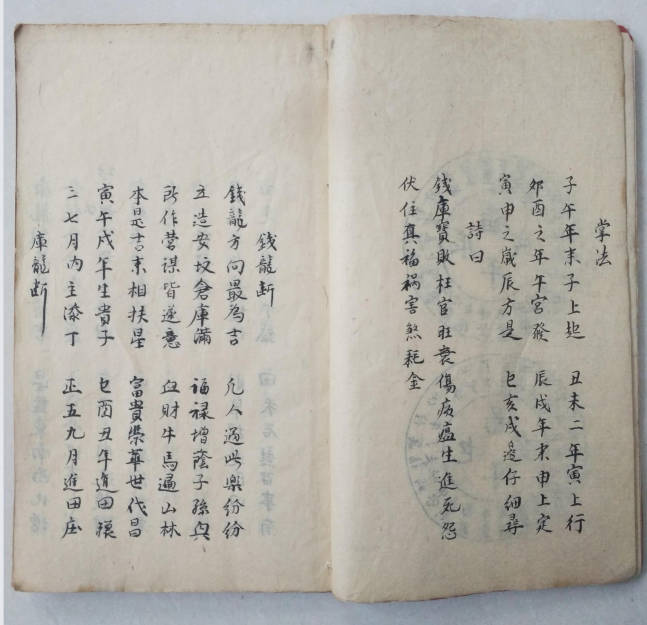 掌法
子午年未子上起 丑未二年寅上行
卯酉之年午宮發 辰戌年求申上定
寅申之歲辰方是 巳亥戌邊仔細尋
詩曰
錢庫寶敗枉官旺衰傷庅瘟生進死怨
伏住真福禍害煞耗金
錢龍断
錢龍方向最為吉 凡人遇此樂紛紛
立造安坟倉庫滿 福禄增蔭子孫兴
所作营謀皆遂意 血財牛馬遍山林
本是吉末相扶星 富貴榮華世代昌
寅午戌年生貴子 巳酉丑年進田
三七月內主添丁 正五九月進田庄
庫龍断